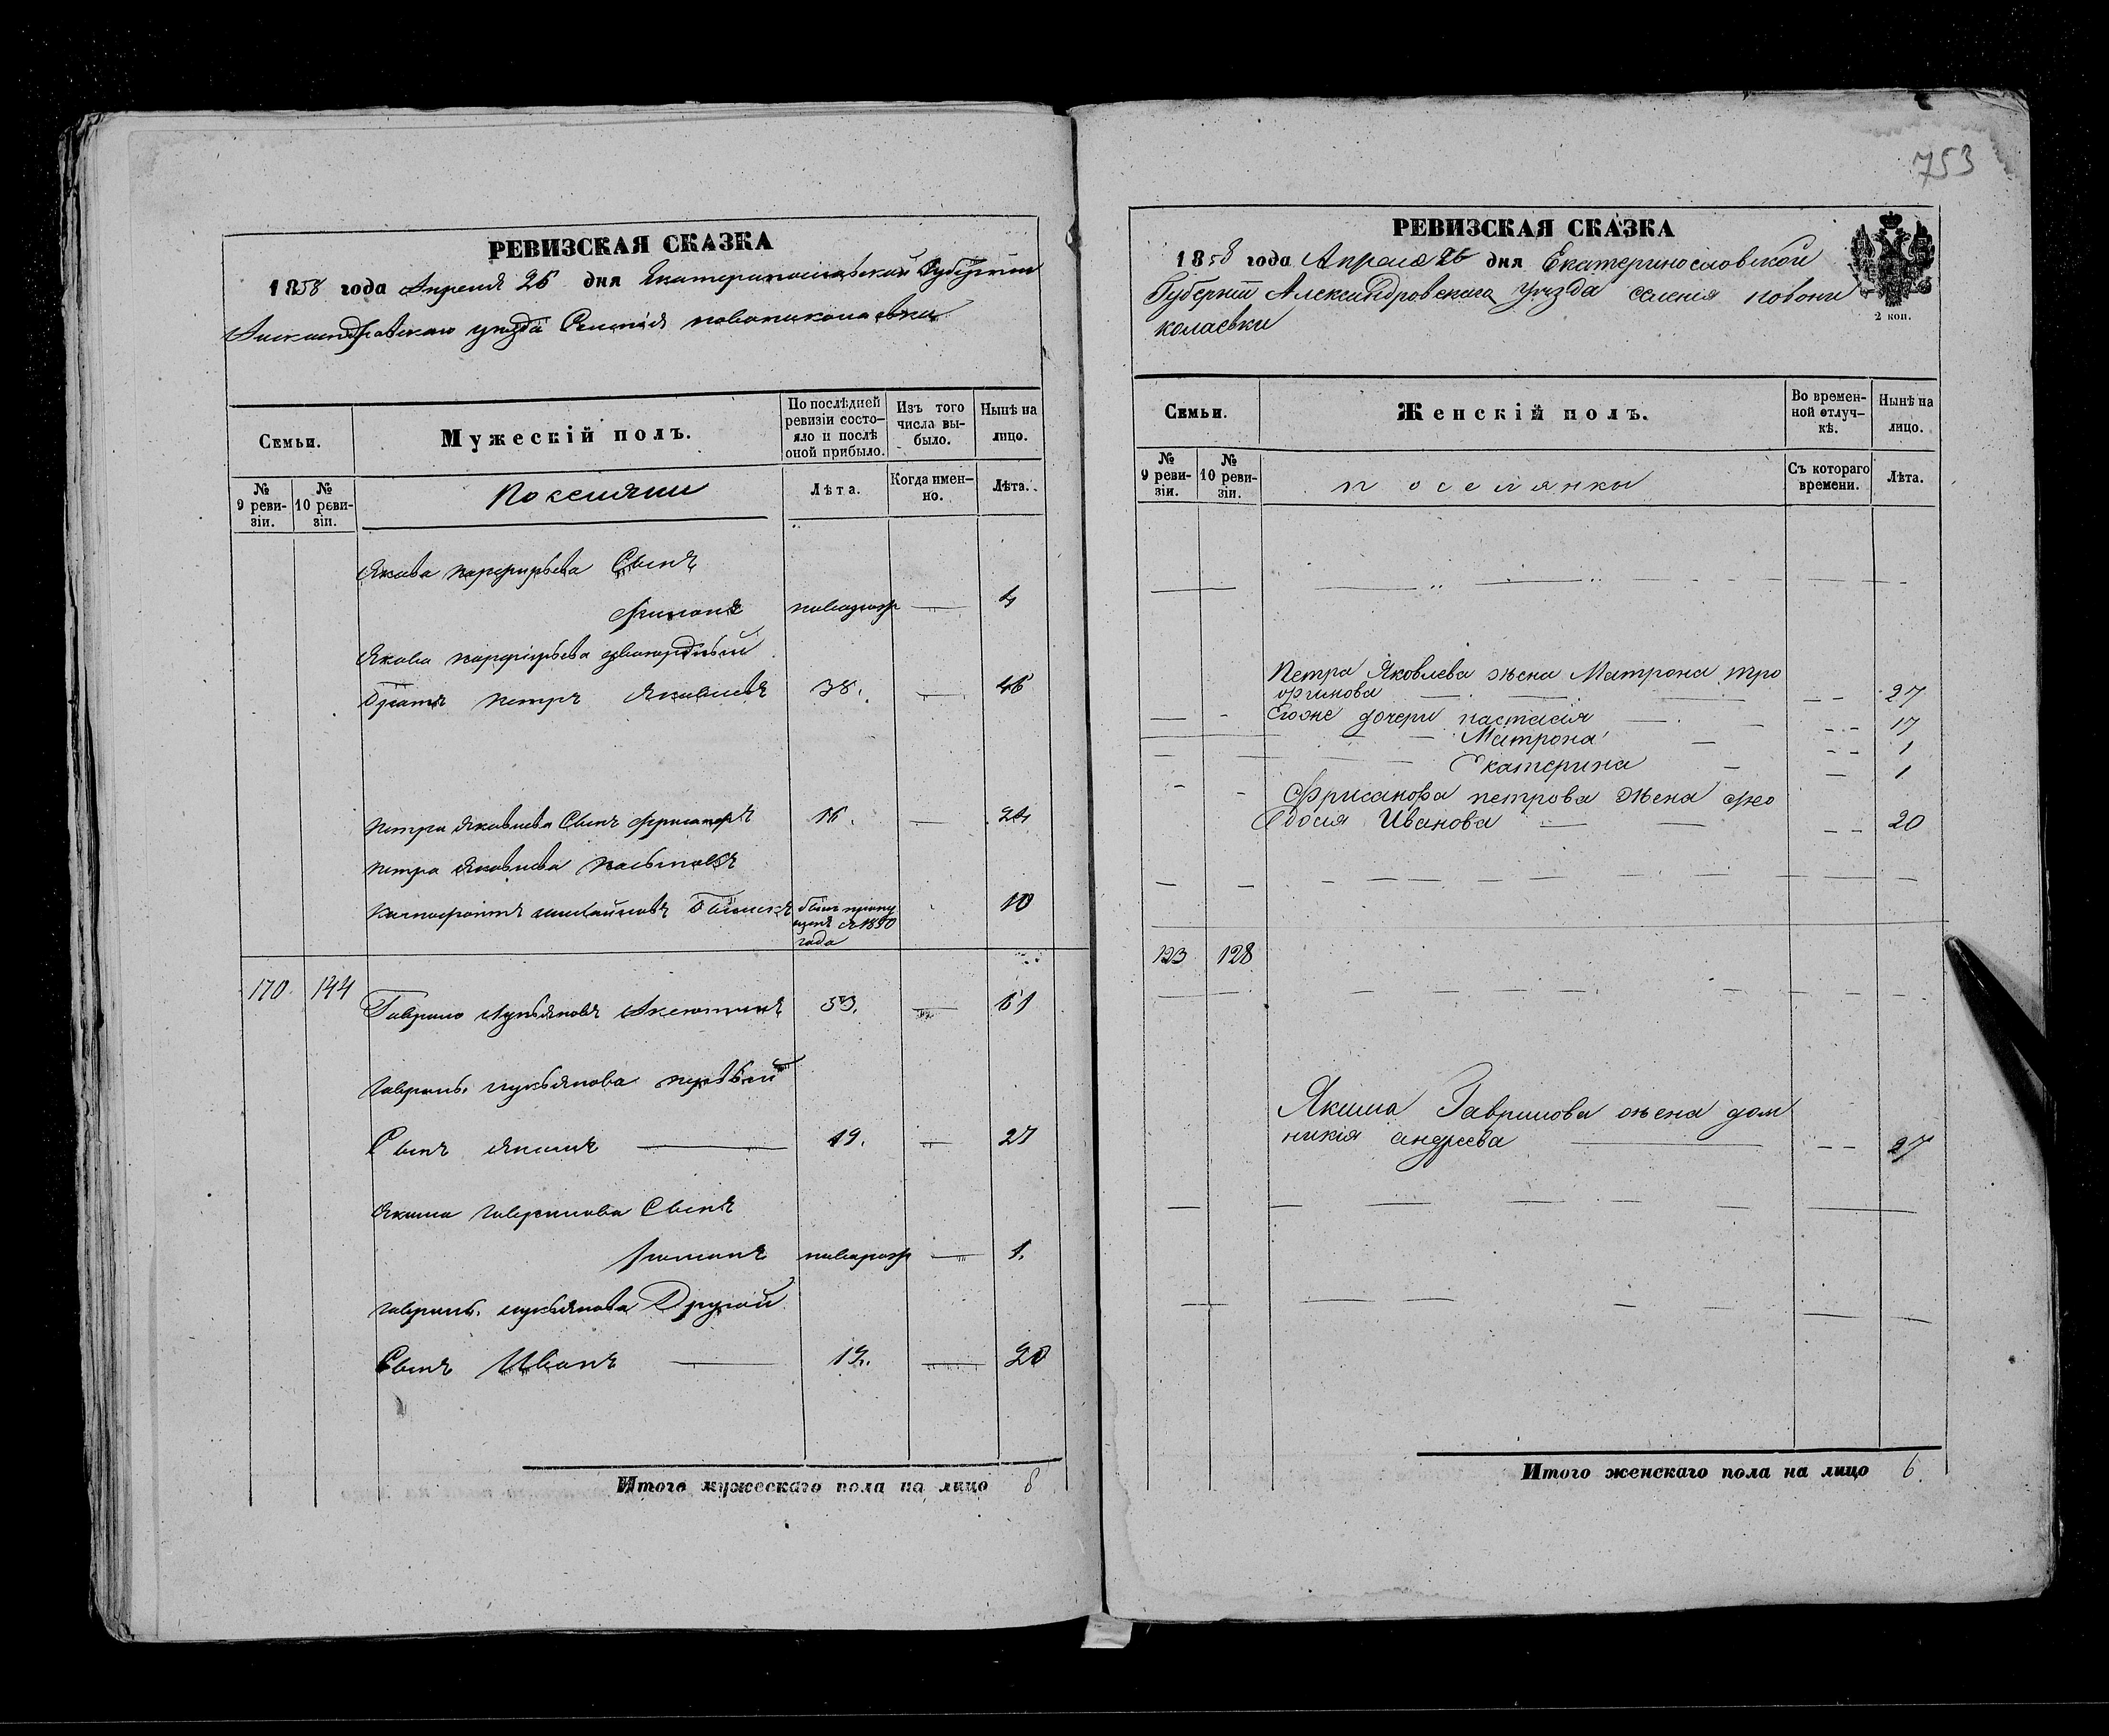 753
РЕВИЗСКАЯ СКАЗКА
1858 года Апреля 26 дня Екатеринославской Губернии
Александровскаго уезда Селенія новониколаевки
Семьи.
Мужескій полъ.
По послѣдней ревизіи состояло и послѣ оной прибыло.
Изъ того числа выбыло.
Нынѣ на лицо.
№ 9 ревизіи.
№ 10 ревизіи.
Поселяни
Лѣта.
Когда именно.
Лѣта.
Якова парфирьева Сынъ
новорожд 4
Якова парфирьева двоюродный
Братъ петръ Яковлевъ 38. 46
Петра Яковлева Сынъ 16. 24
Петра Яковлева
былъ пропущенъ съ 1850 года 10
170 144 Гаврило лукьяновъ Аксютинъ 53. 61
Гаврилы лукьянова первый
Сынъ Якимъ 19. 27
Якима Гаврилова Сынъ
новорожд 1.
Гаврилы лукьянова Другой
Сынъ Иванъ 12. 20
Итого мужескаго пола на лицо 8
РЕВИЗСКАЯ СКАЗКА
1858 года Апреля 26 дня Екатеринославской
Губерніи Александровскага уезда селенія новони
колаевки
2 коп.
Семьи.
Женскій полъ.
Во временной отлучкѣ.
Нынѣ на лицо.
№ 9 ревизіи.
№ 10 ревизіи.
поселянки
Съ котораго времени.
Лѣта.
Петра Яковлева жена Матрона тро
фимова 27
Егоже дочери настасія 17
Матрона 1
Екатерина 1
Хрисанфа петрова жена фео
досія Иванова 20
123 128
Якима Гаврилова жена дом
никія андреева 27
Итого женскаго пола на лицо 6.